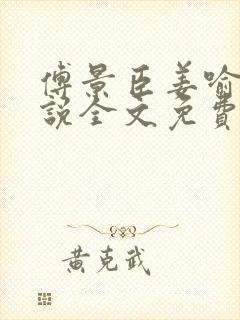 傅景臣姜喻
說全文免費
黃克武